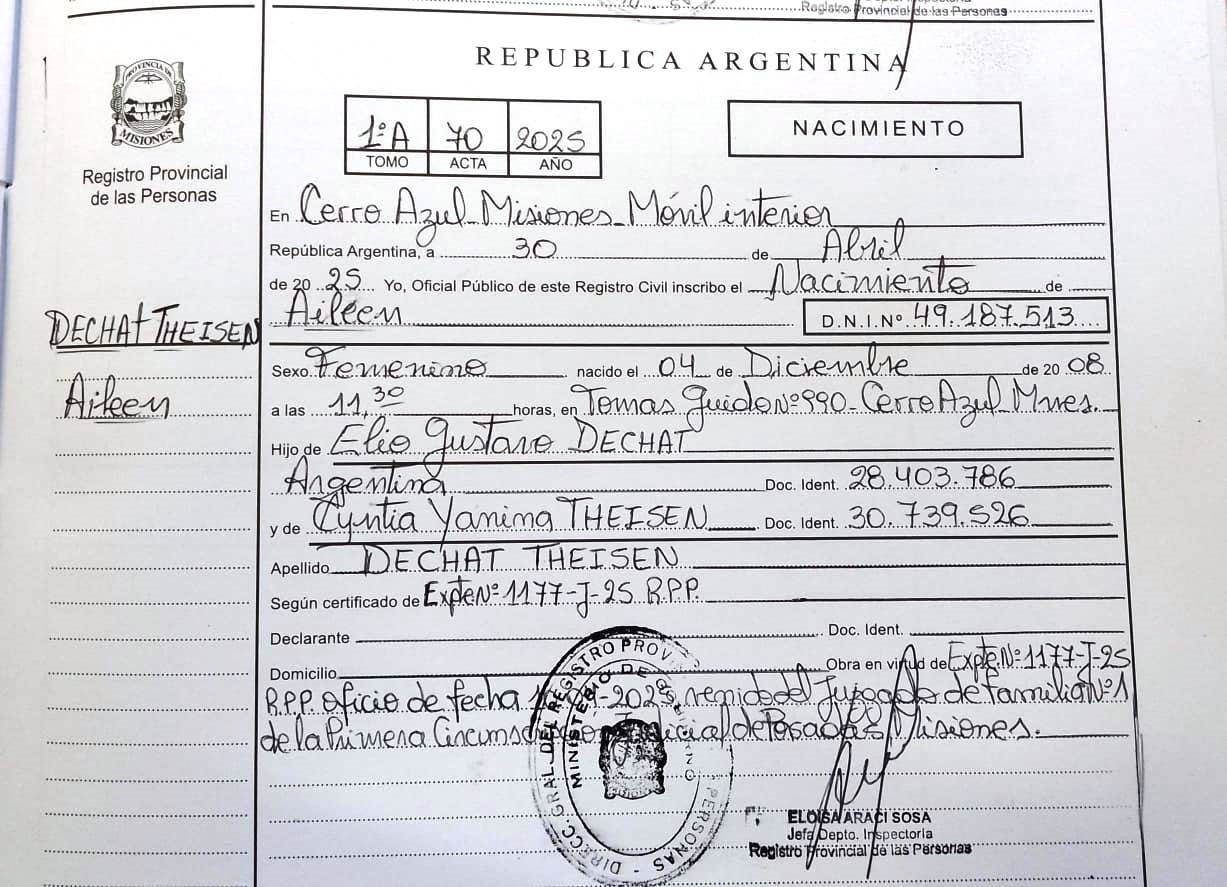 Registro Provincial de las Personas
REPUBLICA ARGENTINA
PROVINCIA DE
MISIONES
Registro Provincial
de las Personas
1ºA 70 2025
TOMO ACTA AÑO
NACIMIENTO
En Cerro Azul Misiones Móvil interior
República Argentina, a 30 de Abril
de 20 25 Yo, Oficial Público de este Registro Civil inscribo el Nacimiento de
DECHAT THEISEN
Aileen
Aileen D.N.I.Nº 49.187.513
Sexo Femenino nacido el 04 de Diciembre de 20 08
a las 11,30 horas, en Tomas Guido Nº 990 - Cerro Azul Mnes.
Hijo de Elio Gustavo DECHAT
Argentina Doc. Ident. 28.403.786
y de Cyntia Yanina THEISEN Doc. Ident. 30.739.526
Apellido DECHAT THEISEN
Según certificado de Expte Nº 1177-J-25 R.P.P.
Declarante Doc. Ident.
Domicilio Obra en virtud de Expte. Nº 1177-J-25
R.P.P. oficio de fecha -2025 venido del Juzgado de familia Nº 1
de la Primera Judicial de Posadas Misiones.
DIRECC. GRAL. DEL REGISTRO PROV. PERSONAS
MINISTERIO DE
ELOISA ARACI SOSA
Jefa Depto. Inspectoria
Registro Provincial de las Personas